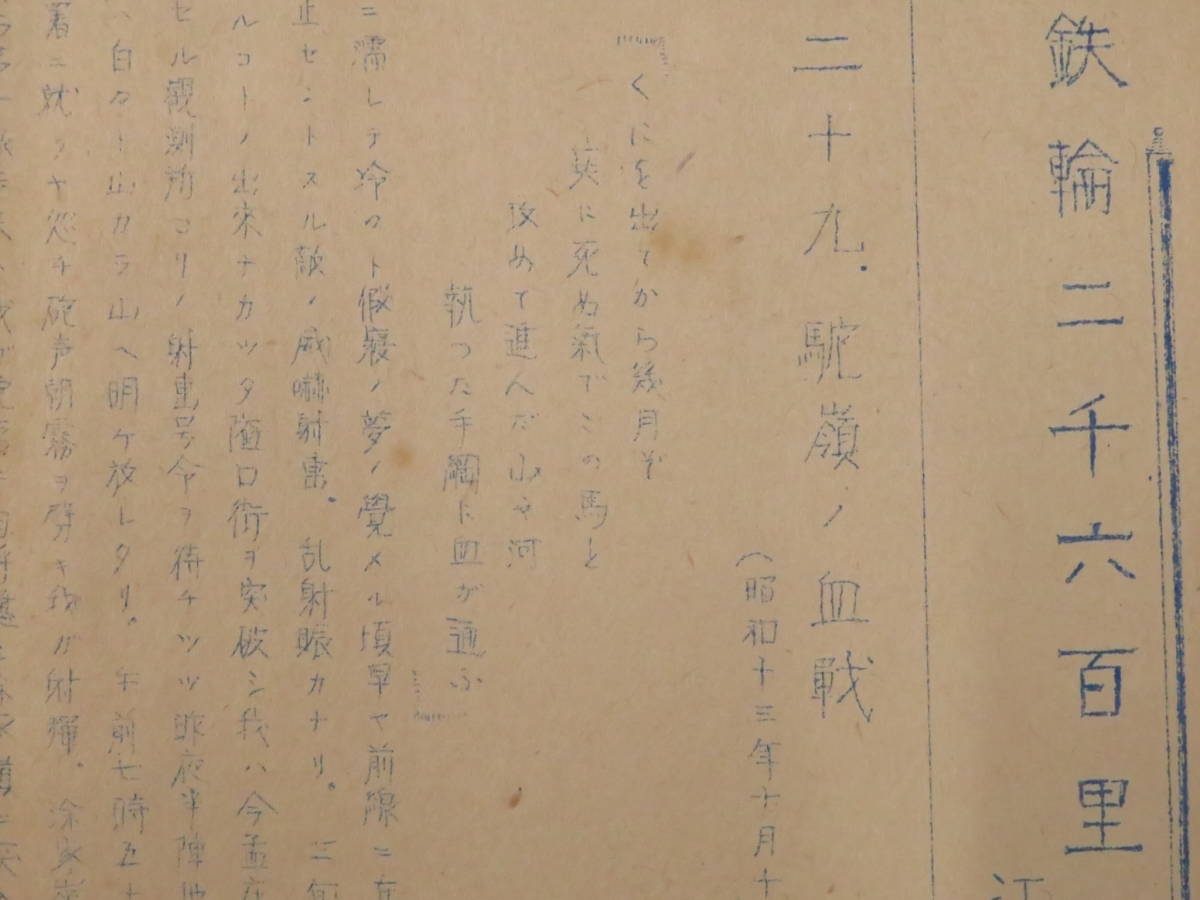 鉄輪二千六百里
江
二十九.駝嶺ノ血戦
(昭和十三年十月十
「くにを出てから幾月ぞ
共に死ぬ氣でこの馬と
攻めて進んだ山や河
執つた手綱に血が通ふ」
ニ濡レテ冷々ト假寢ノ夢ノ覺メル頃早ヤ前線ニ在
止セントスル敵ノ威嚇射撃.乱射賑カナリ。
ルコトノ出來ナカツタ隘口街ヲ突破シ我ハ今孟在
セル観測所ヨリノ射撃号令ヲ待チツツ昨夜半陣地
ハ白々ト山カラ山ヘ明ケ放レタリ。午前七時五十
着ニ就クヤ忽チ砲声朝霧ヲ劈キ我ガ射弾.